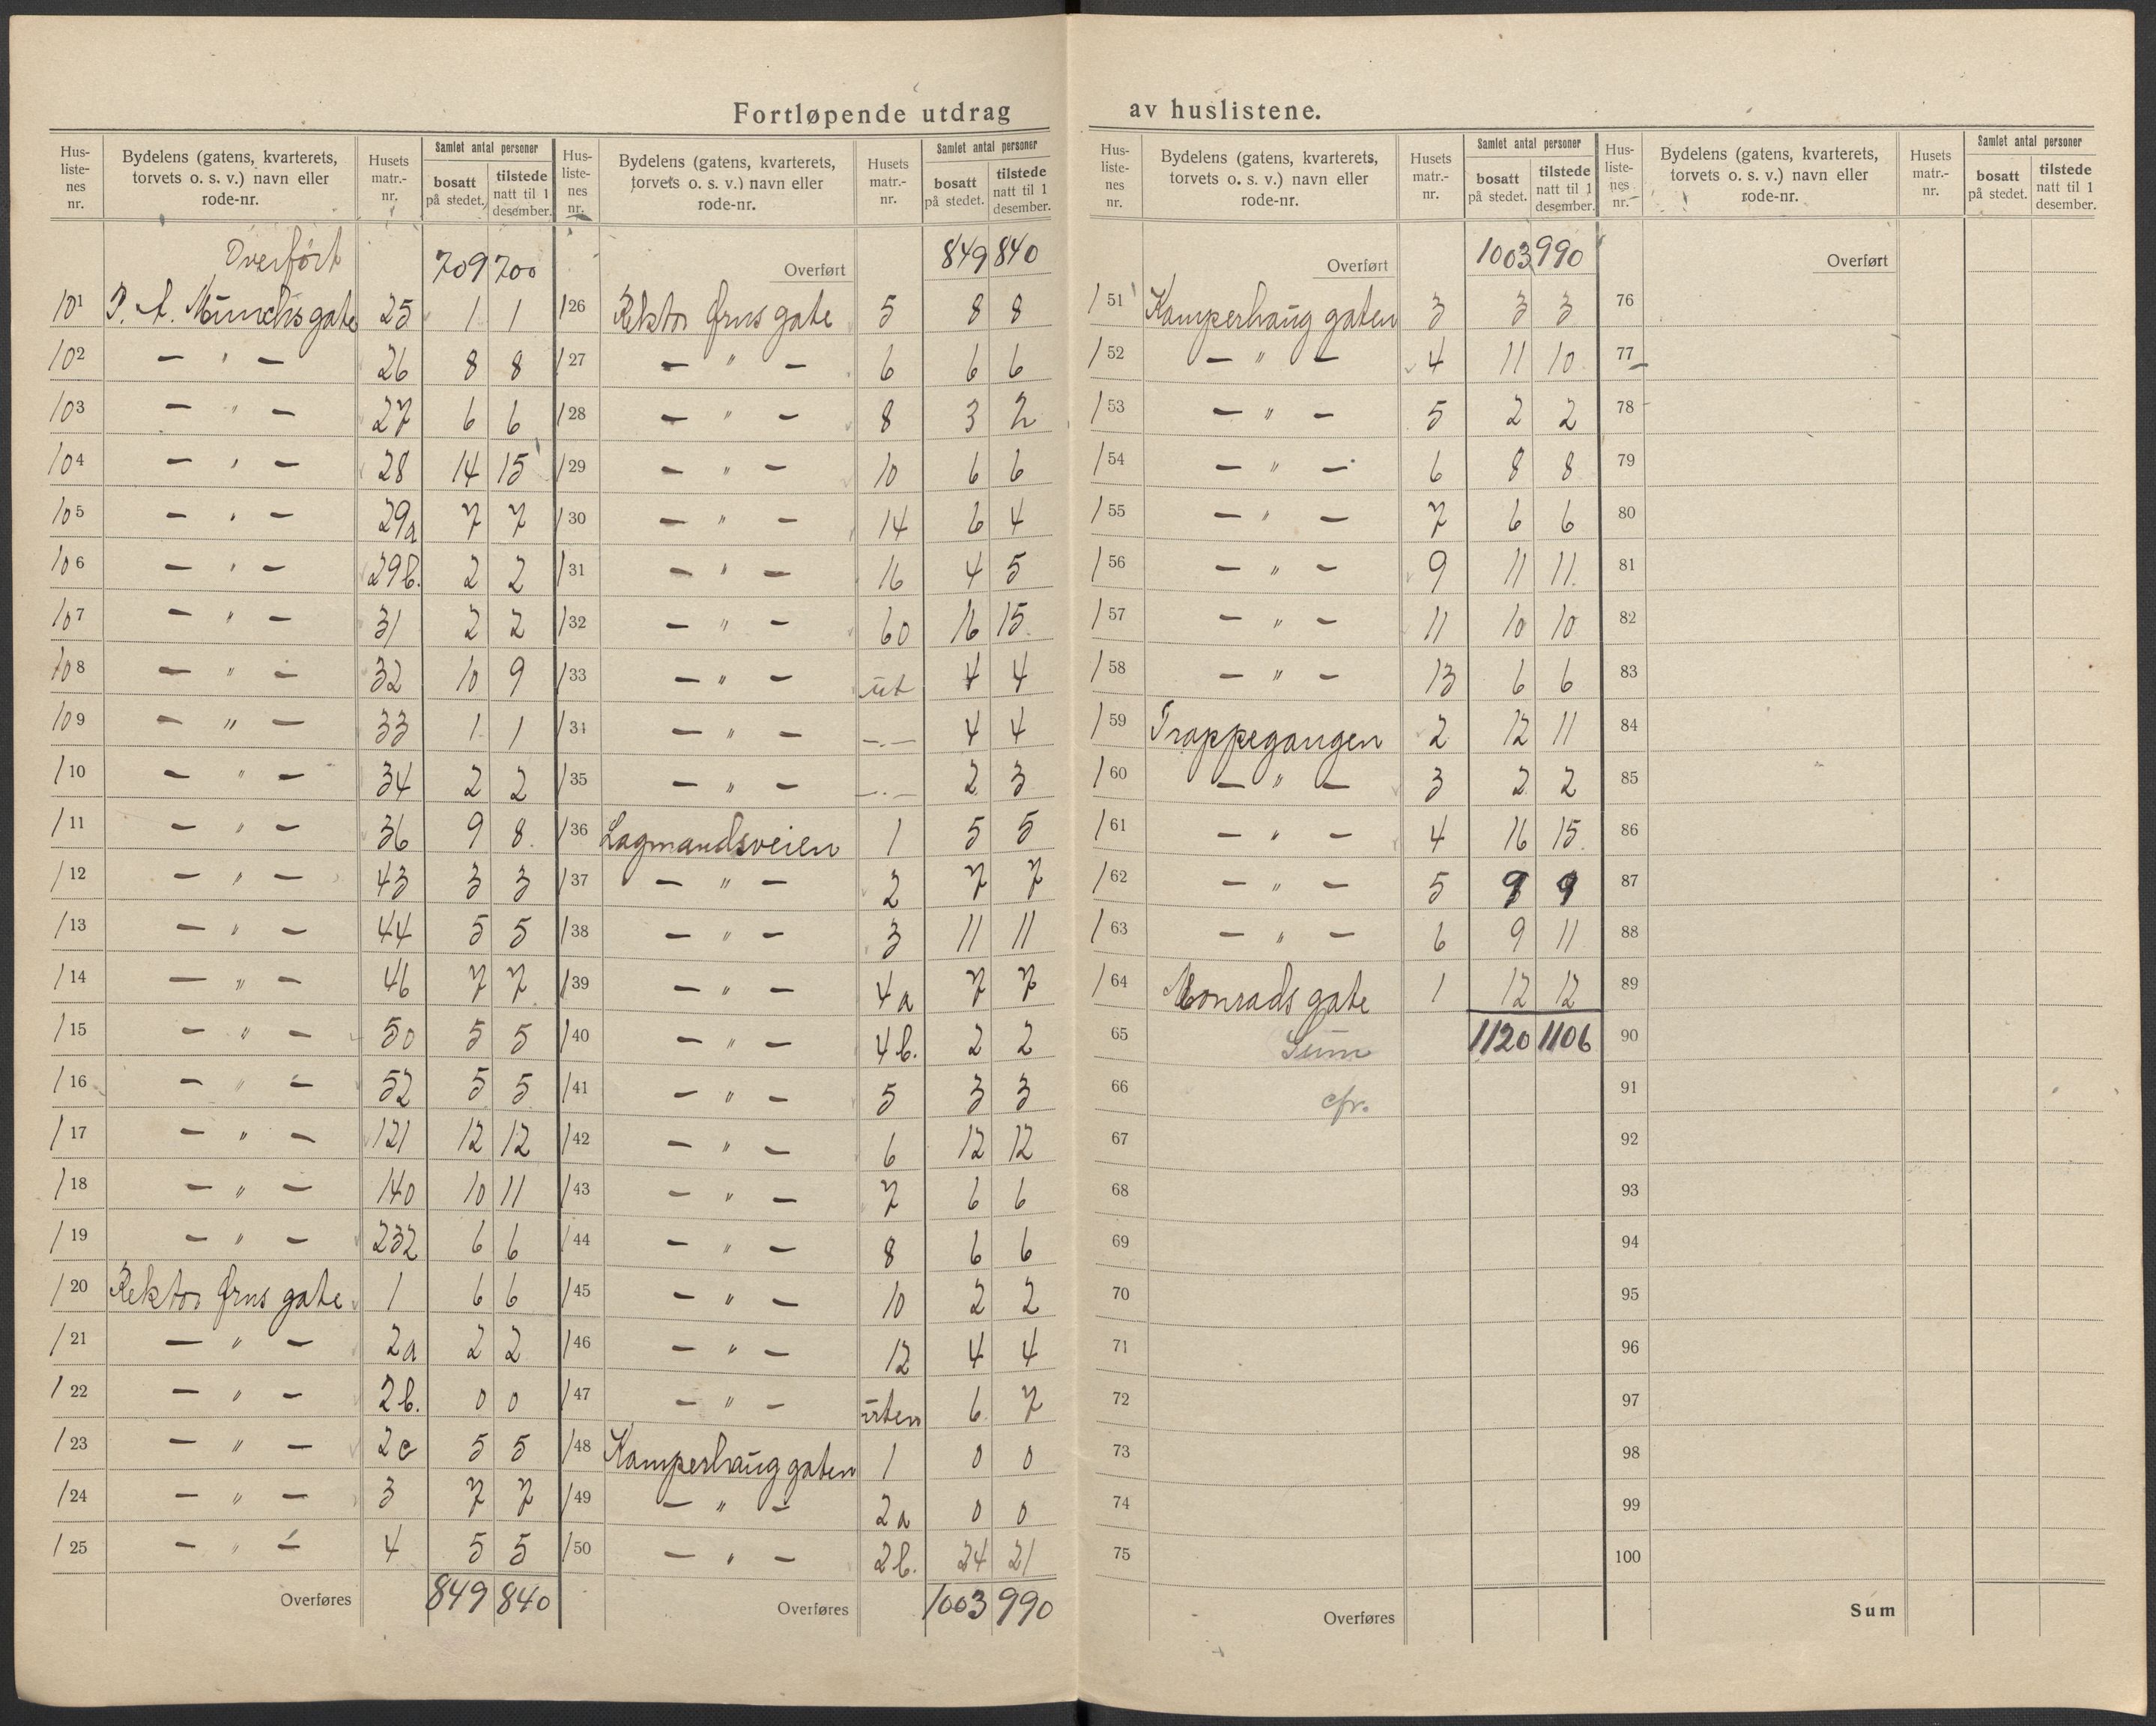 Fortløpende utdrag av huslistene.
Hus-listenes nr. | Bydelens (gatens, kvarterets, torvets o. s. v.) navn eller rode-nr. | Husets matr.-nr. | Samlet antal personer bosatt på stedet. | tilstede natt til 1 desember.
Overført 709 700
101 P. A. Munchs gate 25 1 1
102 — " — 26 8 8
103 — " — 27 6 6
104 — " — 28 14 15
105 — " — 29a 7 7
106 — " — 29b. 2 2
107 — " — 31 2 2
108 — " — 32 10 9
109 — " — 33 1 1
110 — " — 34 2 2
111 — " — 36 9 8
112 — " — 43 3 3
113 — " — 44 5 5
114 — " — 46 7 7
115 — " — 50 5 5
116 — " — 52 5 5
117 — " — 121 12 12
118 — " — 140 10 11
119 — " — 232 6 6
120 Rektor Ørns gate 1 6 6
121 — " — 2a 2 2
122 — " — 2b. 0 0
123 — " — 2c 5 5
124 — " — 3 7 7
125 — " — 4 5 5
Overføres 849 840
Hus-listenes nr. | Bydelens (gatens, kvarterets, torvets o. s. v.) navn eller rode-nr. | Husets matr.-nr. | Samlet antal personer bosatt på stedet. | tilstede natt til 1 desember.
Overført 849 840
126 Rektor Ørns gate 5 8 8
127 — " — 6 6 6
128 — " — 8 3 2
129 — " — 10 6 6
130 — " — 14 6 4
131 — " — 16 4 5
132 — " — 60 16 15
133 — " — ut 4 4
134 — " — —.— 4 4
135 — " — —.— 2 3
136 Lagmandsveien 1 5 5
137 — " — 2 7 7
138 — " — 3 11 11
139 — " — 4a 7 7
140 — " — 4b. 2 2
141 — " — 5 3 3
142 — " — 6 12 12
143 — " — 7 6 6
144 — " — 8 6 6
145 — " — 10 2 2
146 — " — 12 4 4
147 — " — uten 6 7
148 Kamperhaug gaten 1 0 0
149 — " — 2a 0 0
150 — " — 2b. 24 21
Overføres 1003 990
Hus-listenes nr. | Bydelens (gatens, kvarterets, torvets o. s. v.) navn eller rode-nr. | Husets matr.-nr. | Samlet antal personer bosatt på stedet. | tilstede natt til 1 desember.
Overført 1003 990
151 Kamperhaug gaten 3 3 3
152 — " — 4 11 10
153 — " — 5 2 2
154 — " — 6 8 8
155 — " — 7 6 6
156 — " — 9 11 11
157 — " — 11 10 10
158 — " — 13 6 6
159 Trappegangen 2 12 11
160 — " — 3 2 2
161 — " — 4 16 15
162 — " — 5 9 9
163 — " — 6 9 11
164 Monrads gate 1 12 12
65 Sum 1120 1106
66 cfr.
67
68
69
70
71
72
73
74
75
Overføres
Hus-listenes nr. | Bydelens (gatens, kvarterets, torvets o. s. v.) navn eller rode-nr. | Husets matr.-nr. | Samlet antal personer bosatt på stedet. | tilstede natt til 1 desember.
Overført
76
77
78
79
80
81
82
83
84
85
86
87
88
89
90
91
92
93
94
95
96
97
98
99
100
Sum